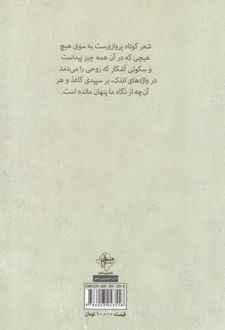 شعر کوتاه پروازی‌ست به سوی هیچ
هیچی که در آن همه چیز پیداست
و سکوتی آشکار که روحی را می‌دمد
در واژه‌های اندک، بر سپیدی کاغذ و هر
آن‌چه از نگاه ما پنهان مانده است.
قیمت: ۱۰,۰۰۰ تومان